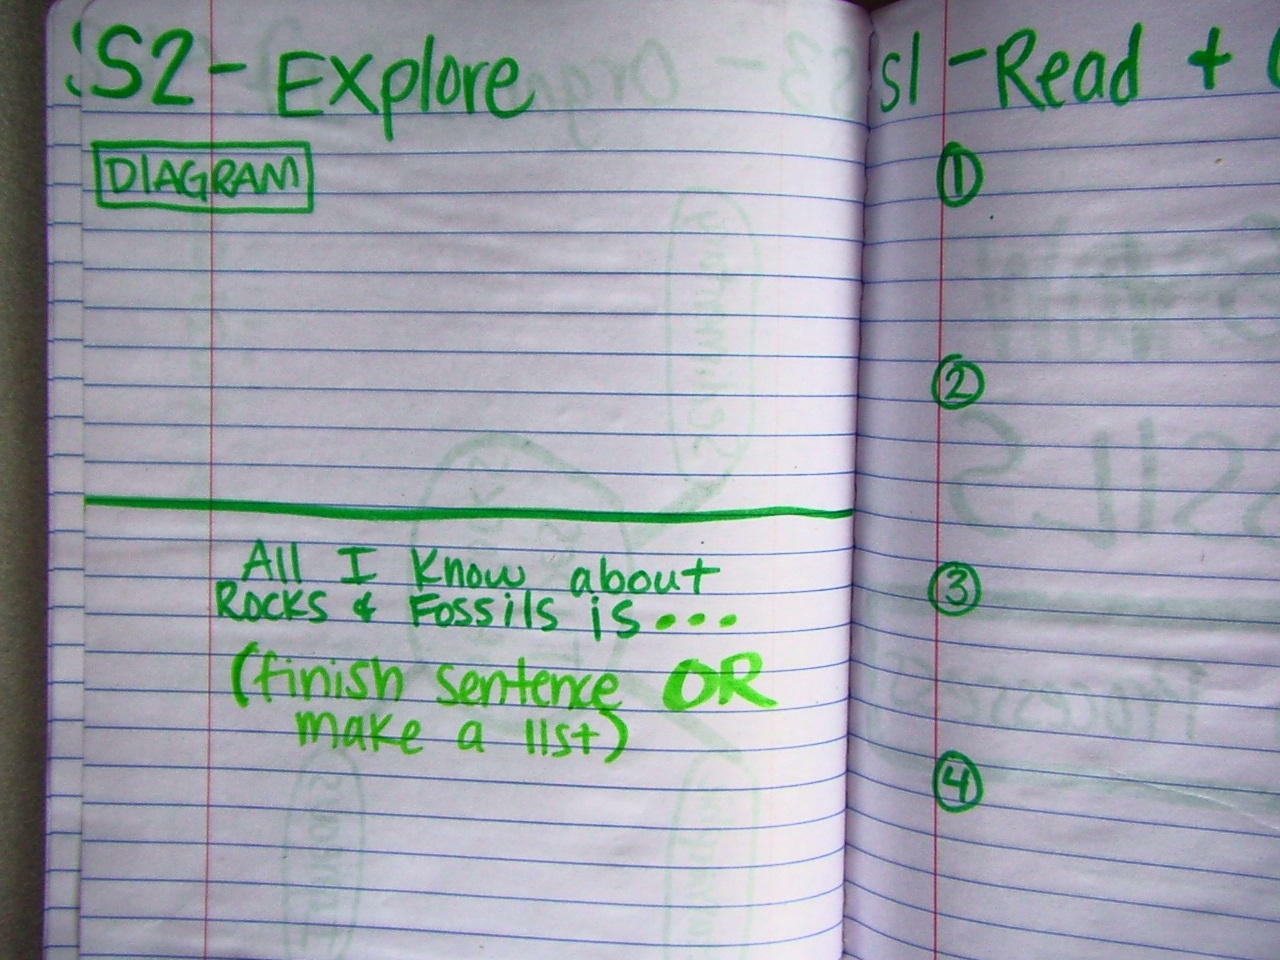 S2 - Explore
DIAGRAM
All I Know about
Rocks & Fossils is...
(finish sentence OR
make a list)
S1 - Read +
1
2
3
4